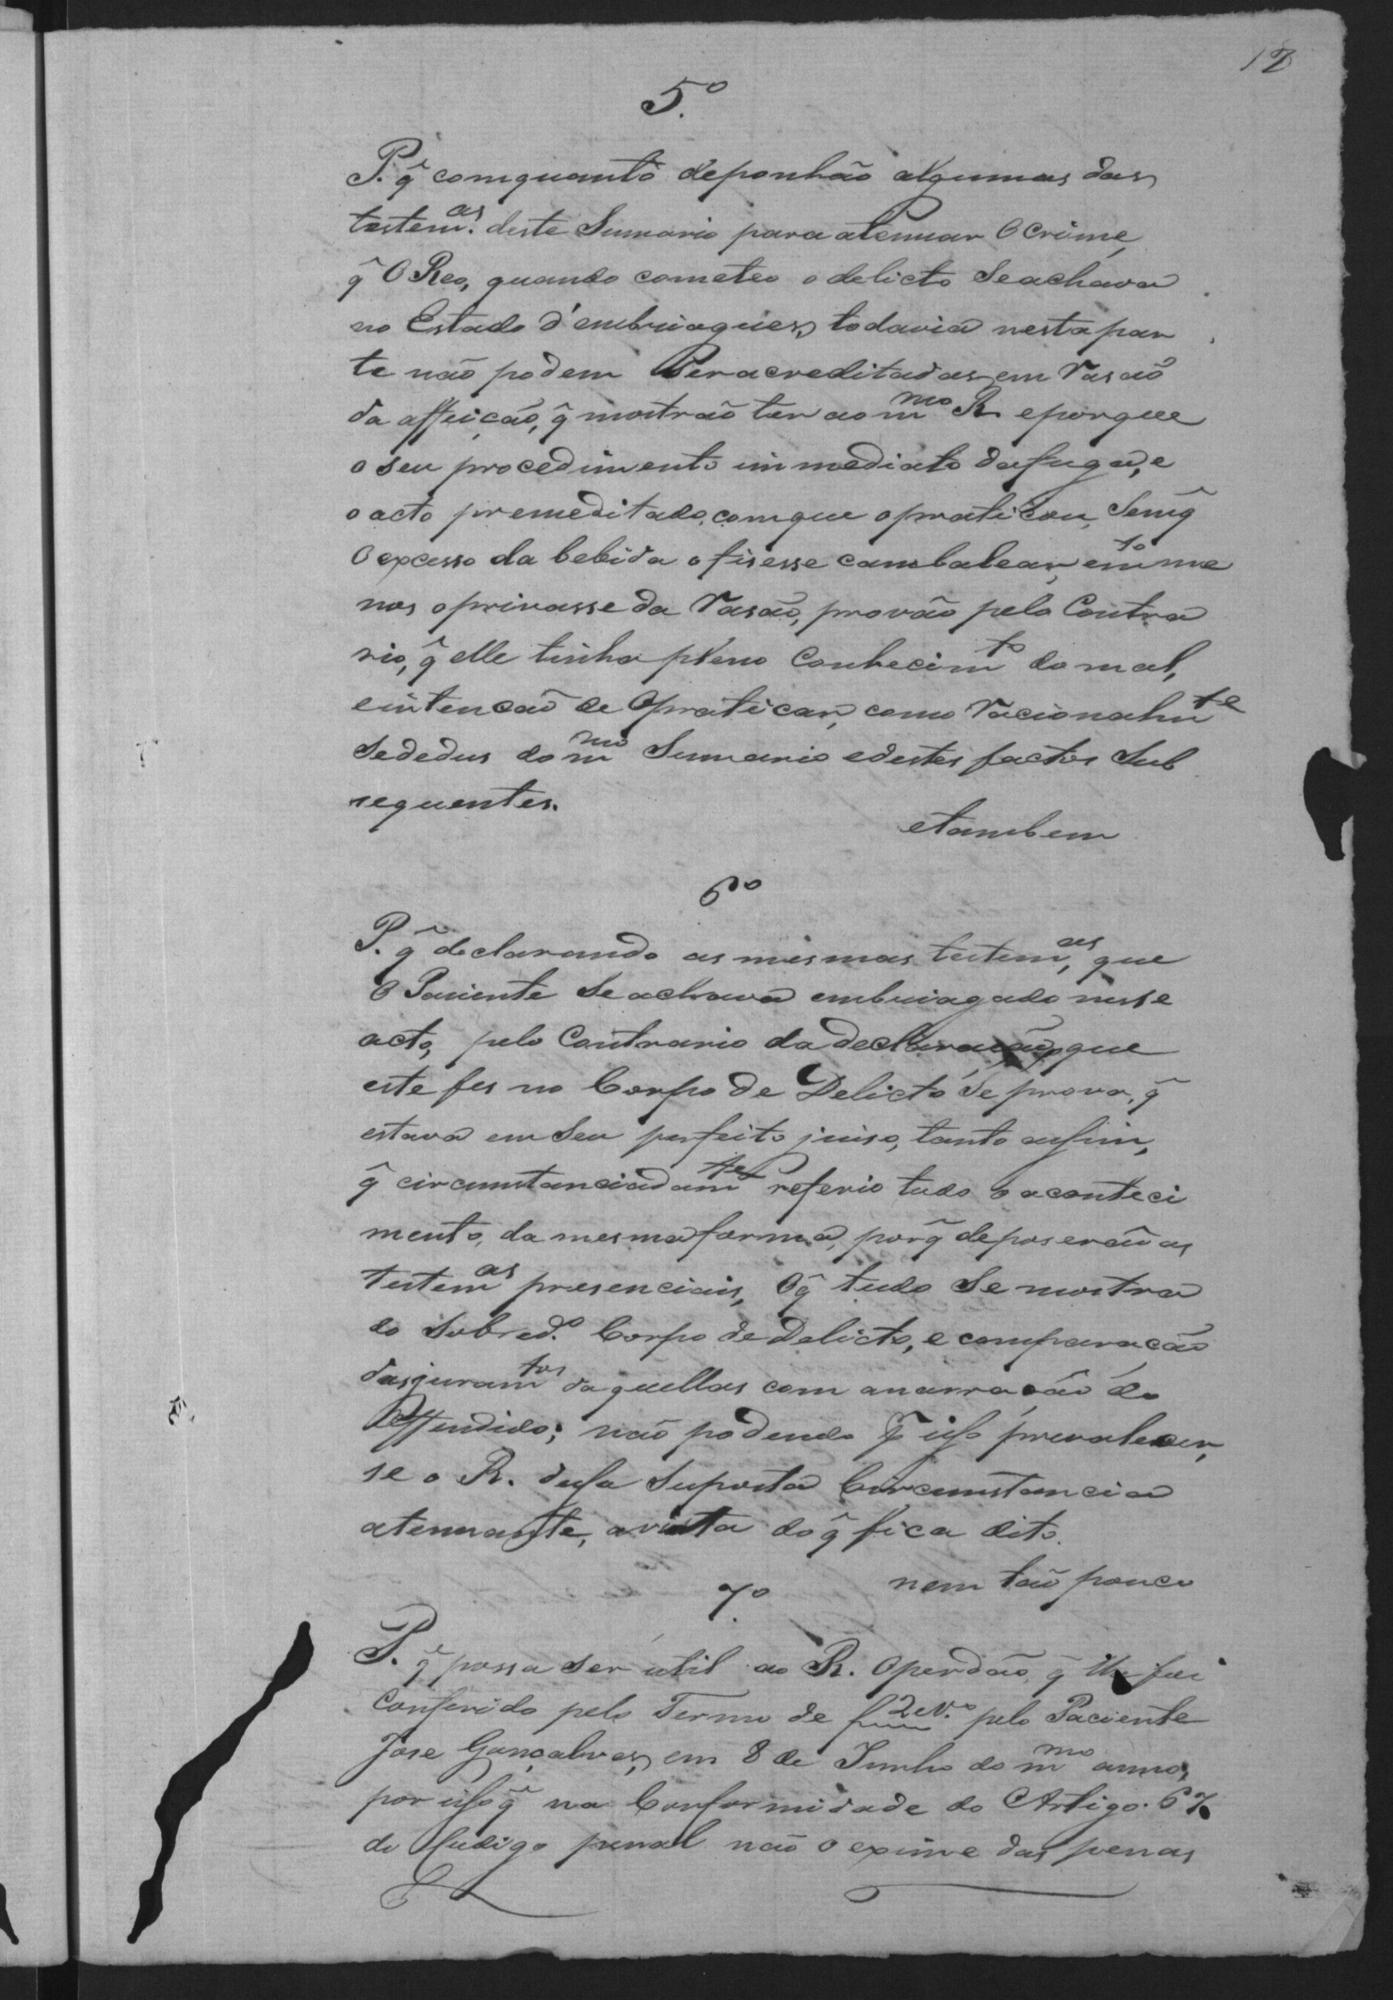 12
5.º
P. q̃ comquanto deponhão algumas das
testem.as deste Sumario para atenuar o crime
q̃ O Reo, quando cometeo o delicto Se achava
no Estado d'embriaguez, todavia nesta par
te não podem Ser acreditadas em rasão
da affeição, q̃ mostrão ter ao mmo R. e porque
o seu procedimento immediato da fuga, e
o acto premeditado, com que o praticou, Semq̃
O excesso da bebida o fisesse cambalear, em to me
nos o privasse da rasão, provão pelo Contra
rio, q̃ elle tinha pleno Conhecimto do mal,
e intenção de o praticar, como racionalmte
Se dedus do mmo Sumario e destes factos Sub
sequentes.
e tambem
6º
P. q̃ declarando as mesmas testemas, que
O Paciente Se achava embriagado nesse
acto, pelo Contrario da declaração, que
este fes no Corpo de Delicto Se prova, q̃
estava em Seu perfeito juiso, tanto assim,
q̃ circumstanciadamte referio todo o aconteci
mento, da mesma forma, porq̃ deposerão as
testemas presenciais, Oq̃ tudo Se mostra
do Sobred.º Corpo de Delicto, e comparação
das juramtos daquellas com a narração do
Offendido; não podendo p̃ isso prevalecer,
se o R. dessa Suposta Circumstancia
atenuante, a vista doq̃ fica dito.
nem tão pouco
7.º
P. q̃ possa ser util ao R. O perdão, q̃ lhe foi
Conferido pelo Termo de f 2 e V.º pelo Paciente
Jose Gonçalves, em 8 de Junho do mmo anno,
por isso q̃ na Conformidade do Artigo. 67
do Codigo penal não o exime das penas